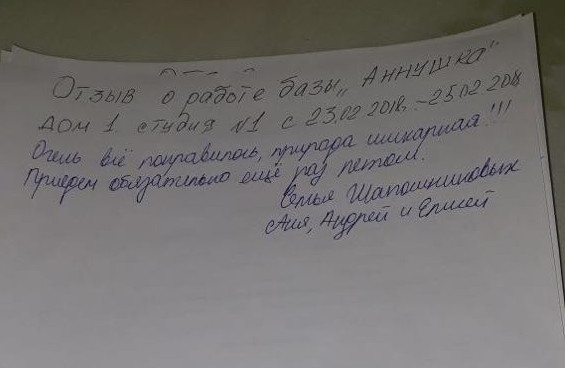 Отзыв о работе базы „Аннушка"
дом 1 студия №1 с 23.02.2018г. – 25.02.2018
Очень всё понравилось, природа шикарная!!!
Приедем обязательно ещё раз летом.
Семья Шапошниковых
Аня, Андрей и Елисей